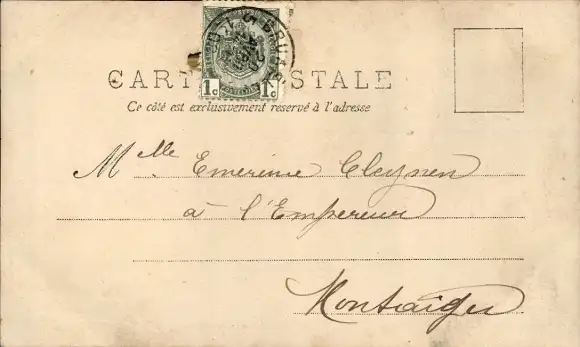 CARTE POSTALE
Ce côté est exclusivement reservé à l'adresse
1c 1c
Mlle Emerime Cleynen
à l'Empereur
Montaigu